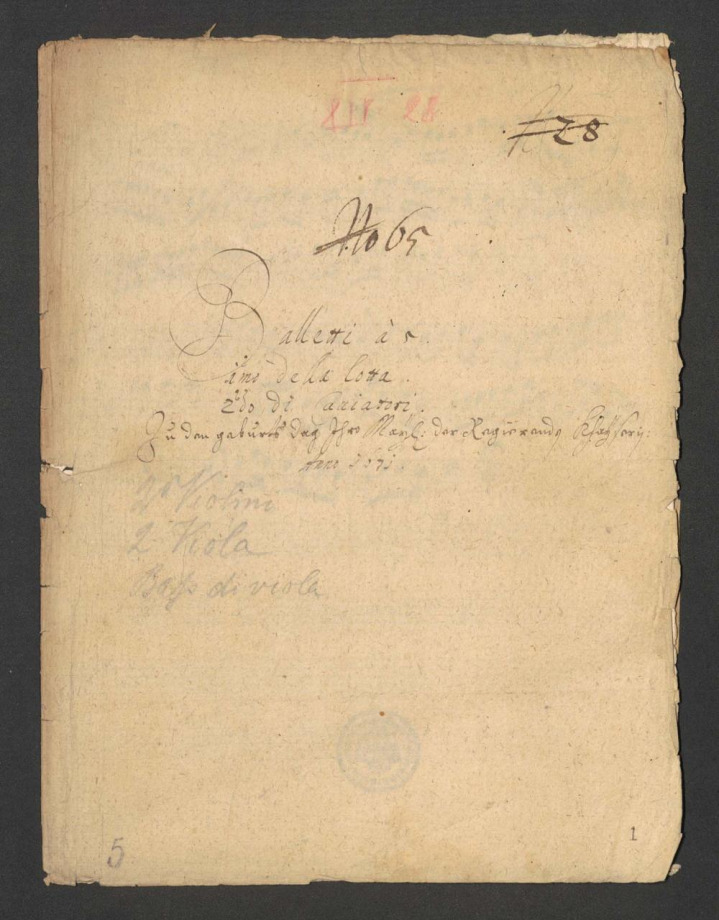 28
N 28
No 65
Balletti à 5.
imo de la lotta.
2do di Caciatori.
Zu den geburts Dag Ihro Mayt: der Regierendn Khayserin:
Anno 1671.
2 Violini
2 Viola
Bass di viola
5
1